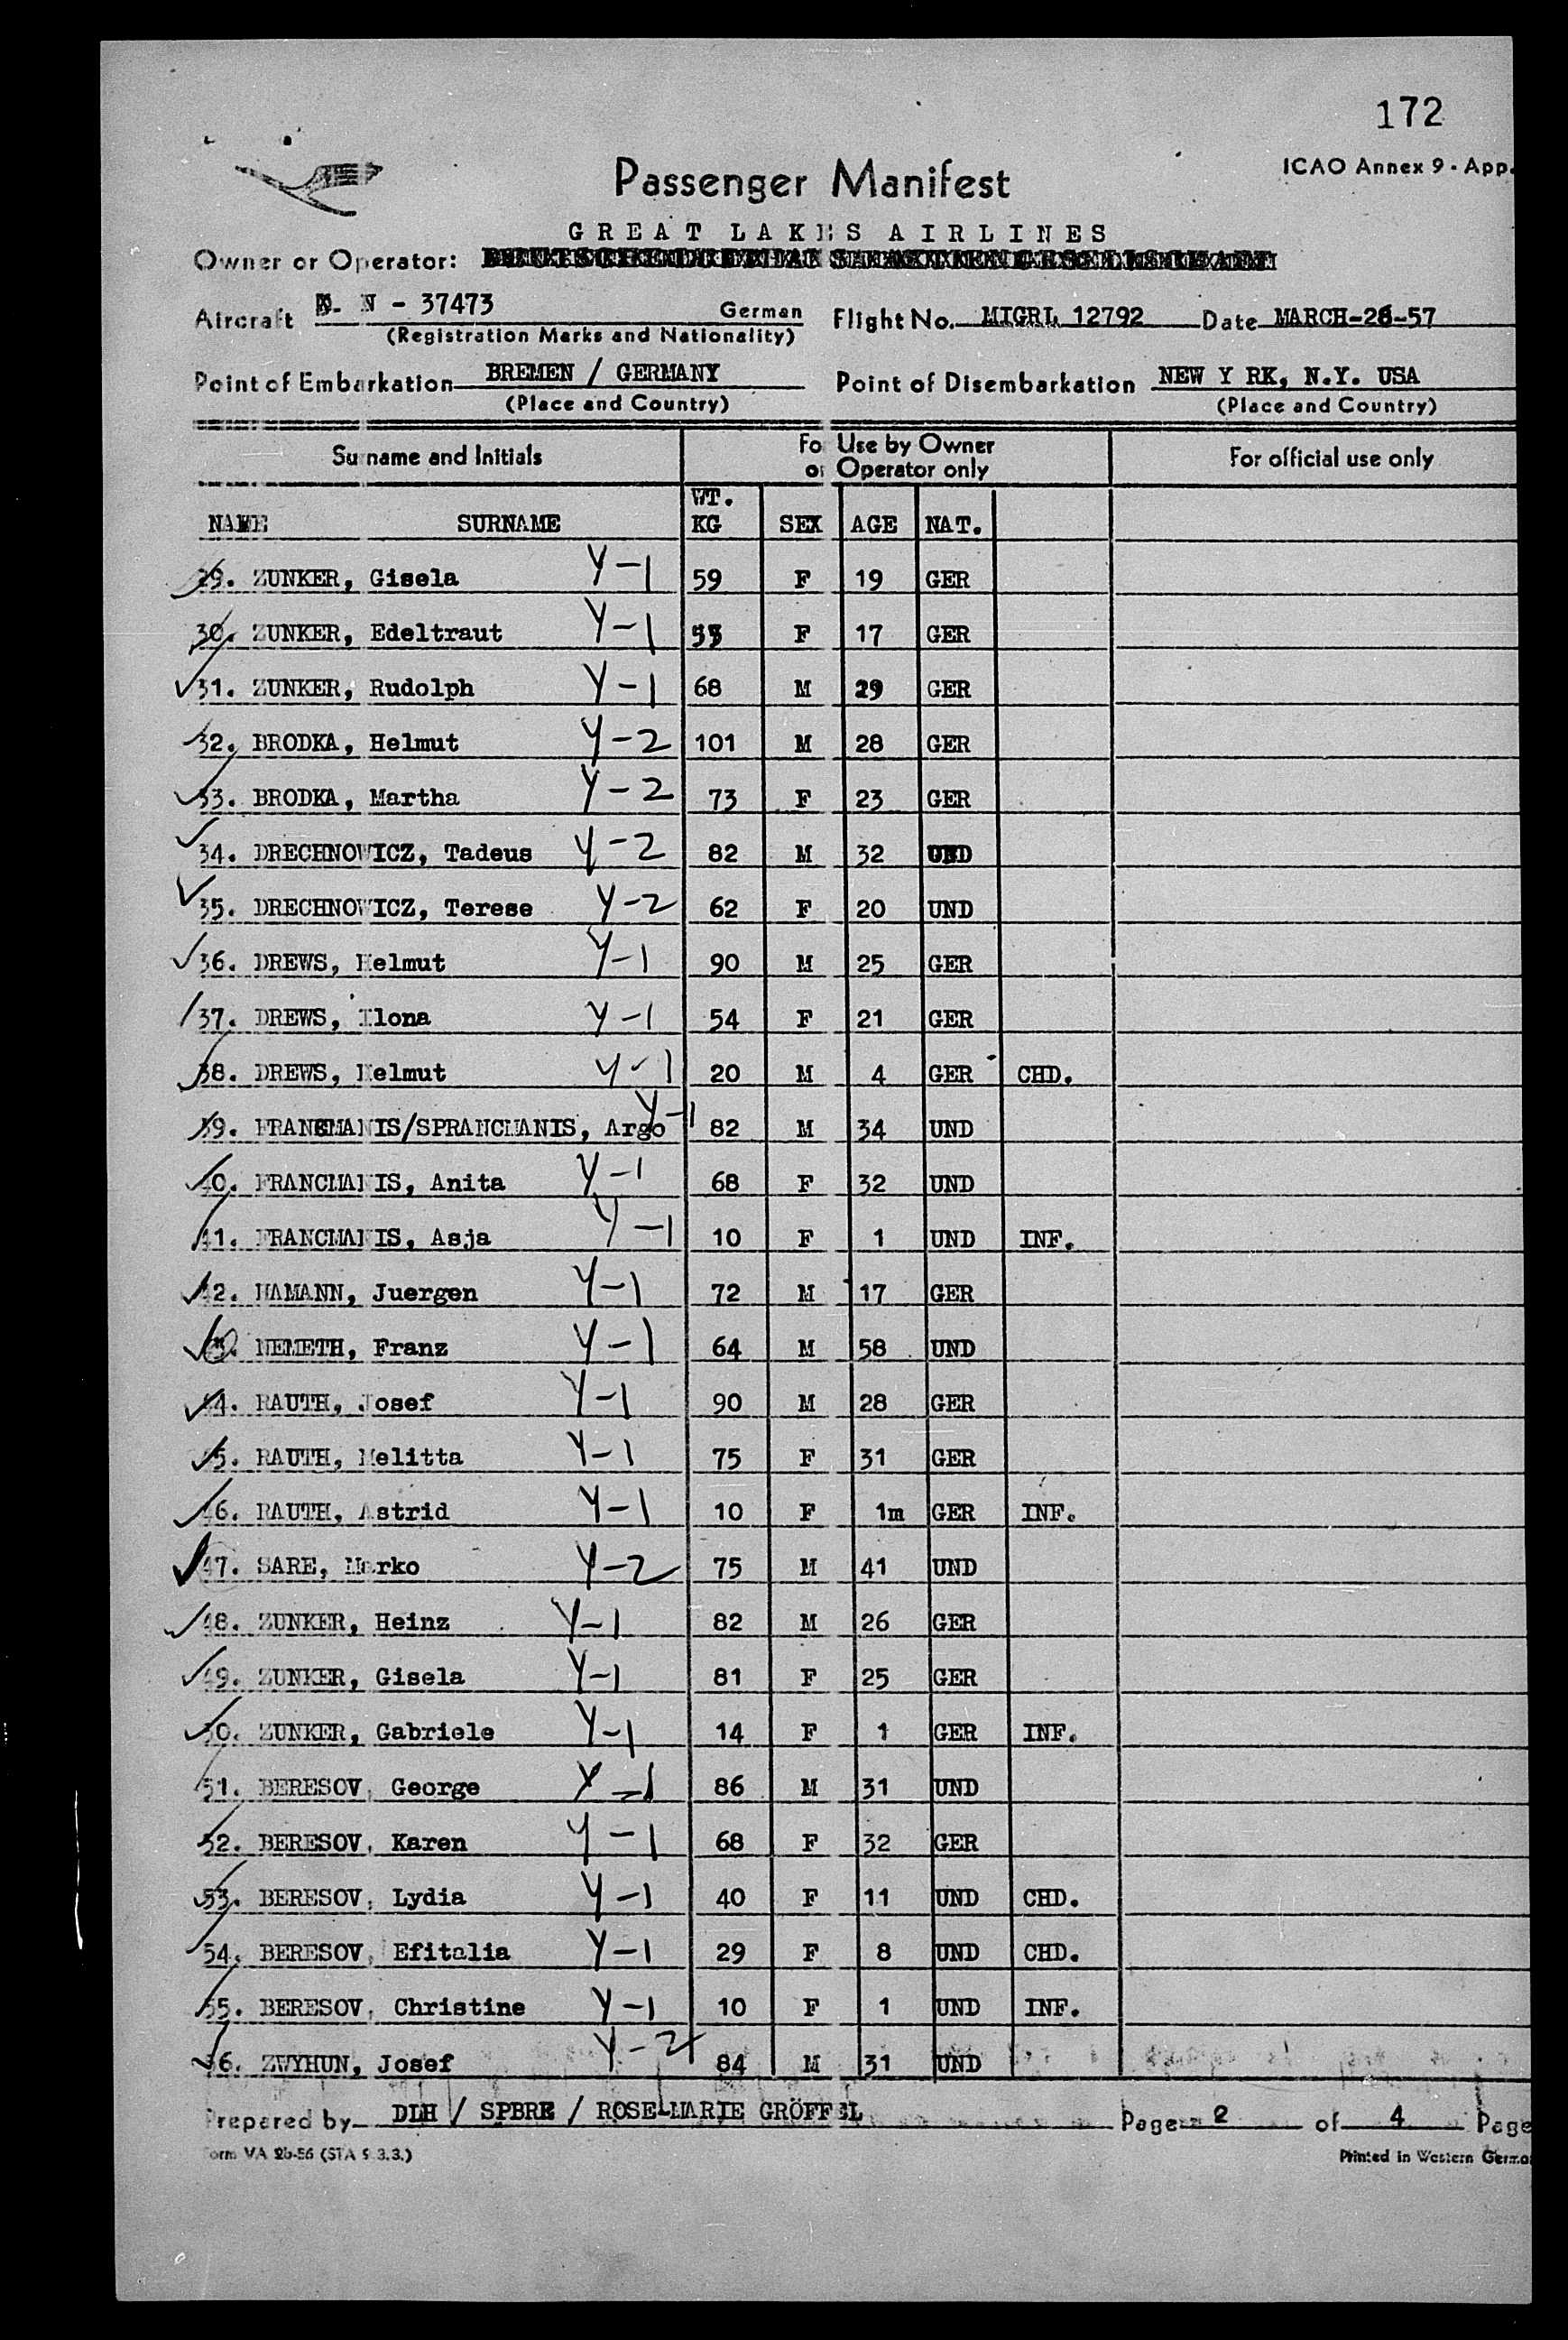 172
ICAO Annex 9 - App.
Passenger Manifest
GREAT LAKES AIRLINES
Owner or Operator:
Aircraft N - 37473 German Flight No. MIGRL 12792 Date MARCH-26-57
(Registration Marks and Nationality)
Point of Embarkation BREMEN / GERMANY Point of Disembarkation NEW Y RK, N.Y. USA
(Place and Country) (Place and Country)
Surname and Initials For Use by Owner or Operator only For official use only
NAME SURNAME WT. KG SEX AGE NAT.
29. ZUNKER, Gisela Y-1 59 F 19 GER
30. ZUNKER, Edeltraut Y-1 55 F 17 GER
31. ZUNKER, Rudolph Y-1 68 M 29 GER
32. BRODKA, Helmut Y-2 101 M 28 GER
33. BRODKA, Martha Y-2 73 F 23 GER
34. DRECHNOWICZ, Tadeus Y-2 82 M 32 UND
35. DRECHNOWICZ, Terese Y-2 62 F 20 UND
36. DREWS, Helmut Y-1 90 M 25 GER
37. DREWS, Ilona Y-1 54 F 21 GER
38. DREWS, Helmut Y-1 20 M 4 GER CHD.
39. FRANCMANIS/SPRANCMANIS, Argo Y-1 82 M 34 UND
40. FRANCMANIS, Anita Y-1 68 F 32 UND
41. FRANCMANIS, Asja Y-1 10 F 1 UND INF.
42. HAMANN, Juergen Y-1 72 M 17 GER
43. NEMETH, Franz Y-1 64 M 58 UND
44. RAUTH, Josef Y-1 90 M 28 GER
45. RAUTH, Melitta Y-1 75 F 31 GER
46. RAUTH, Astrid Y-1 10 F 1m GER INF.
47. SARE, Marko Y-2 75 M 41 UND
48. ZUNKER, Heinz Y-1 82 M 26 GER
49. ZUNKER, Gisela Y-1 81 F 25 GER
50. ZUNKER, Gabriele Y-1 14 F 1 GER INF.
51. BERESOV, George Y-1 86 M 31 UND
52. BERESOV, Karen Y-1 68 F 32 GER
53. BERESOV, Lydia Y-1 40 F 11 UND CHD.
54. BERESOV, Efitalia Y-1 29 F 8 UND CHD.
55. BERESOV, Christine Y-1 10 F 1 UND INF.
56. ZWYHUN, Josef Y-2 84 M 31 UND
Prepared by DLH / SPBRE / ROSE-MARIE GRÖFFEL Page 2 of 4 Page
Form VA 2b-56 (STA 9.3.3.) Printed in Western Germa